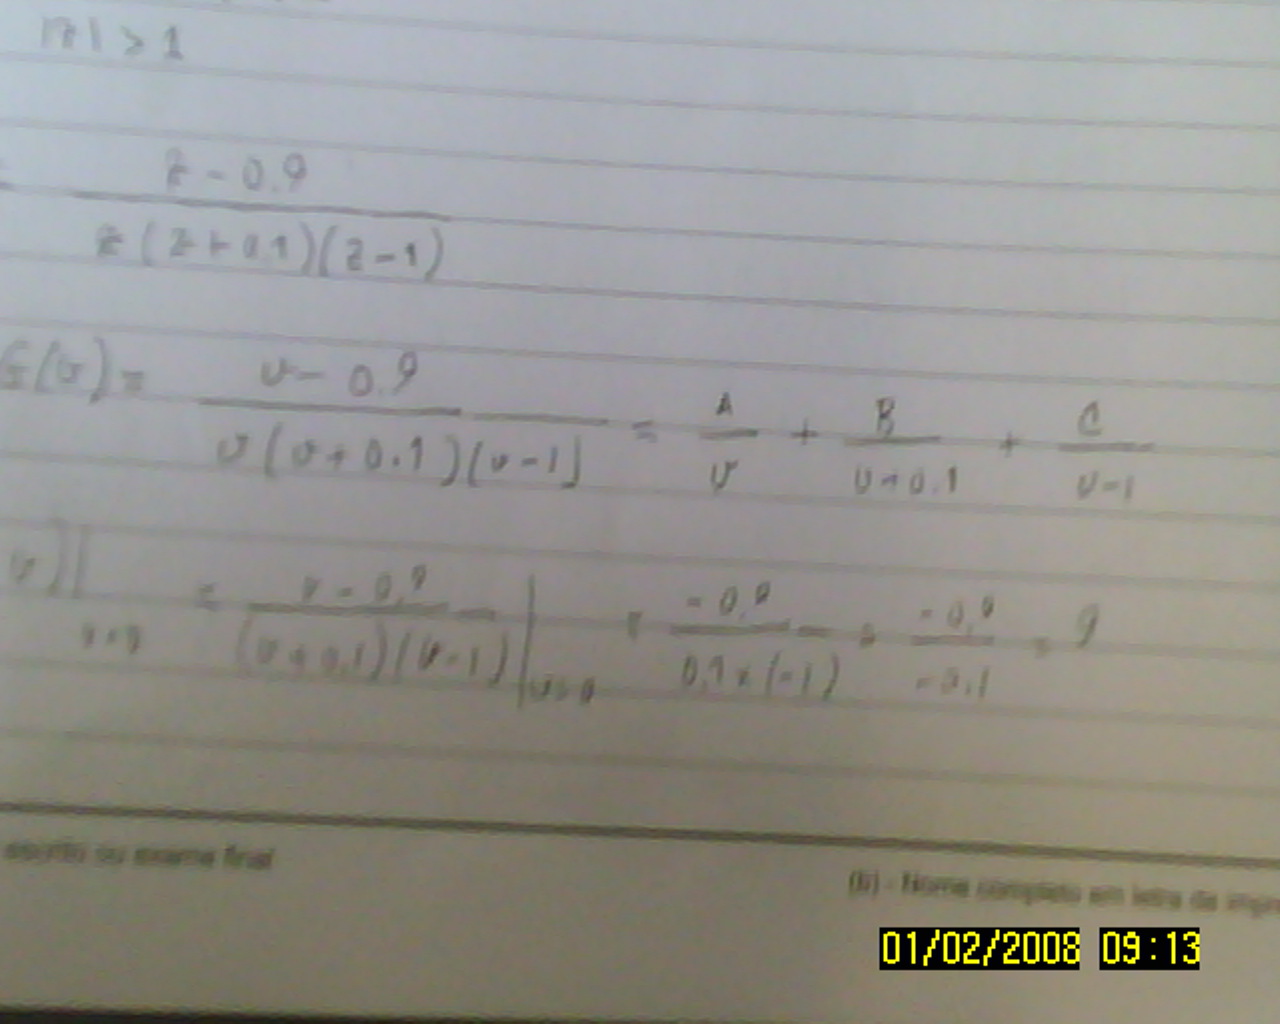 |z| > 1
z - 0.9
z (z + 0.1)(z - 1)
G(v) = v - 0.9 / v (v + 0.1)(v - 1) = A / v + B / v + 0.1 + C / v - 1
v)]| v=0 = v - 0.9 / (v + 0.1)(v - 1) | v=0 = -0.9 / 0.1 x (-1) = -0.9 / -0.1 = 9
escrito ou exame final
(b) - Nome completo em letra de
01/02/2008 09:13